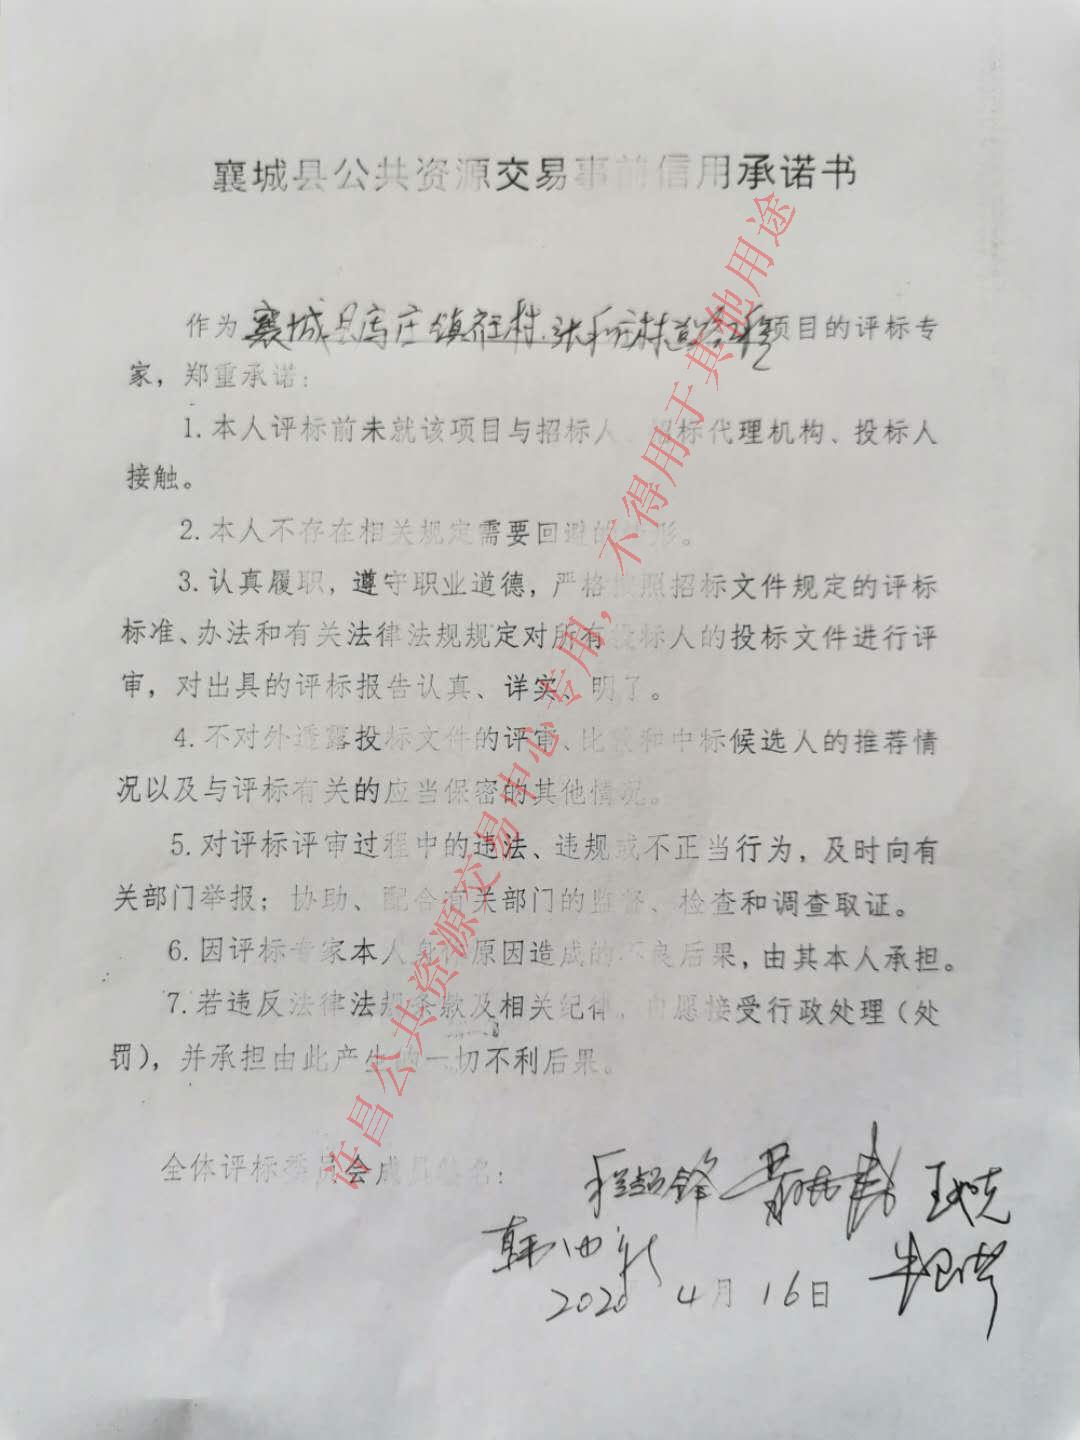 襄城县公共资源交易事前信用承诺书
作为襄城县库庄镇 村、张 庄村道路工程项目的评标专
家，郑重承诺：
1.本人评标前未就该项目与招标人、招标代理机构、投标人
接触。
2.本人不存在相关规定需要回避的情形。
3.认真履职，遵守职业道德，严格按照招标文件规定的评标
标准、办法和有关法律法规规定对所有投标人的投标文件进行评
审，对出具的评标报告认真、详实、明了。
4.不对外透露投标文件的评审、比较和中标候选人的推荐情
况以及与评标有关的应当保密的其他情况。
5.对评标评审过程中的违法、违规或不正当行为，及时向有
关部门举报；协助、配合有关部门的监督、检查和调查取证。
6.因评标专家本人身体原因造成的不良后果，由其本人承担。
7.若违反法律法规条款及相关纪律，自愿接受行政处理（处
罚），并承担由此产生的一切不利后果。
全体评标委员会成员签名：
2020 4月16日
许昌公共资源交易中心专用，不得用于其他用途